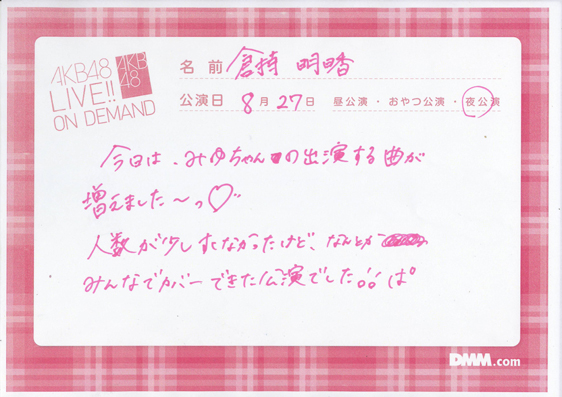 AKB48
LIVE!!
ON DEMAND
AKB
48
名前 倉持 明日香
公演日 8月27日 昼公演・おやつ公演・夜公演
今日は、みゆちゃんの出演する曲が
増えました〜っ♡
人数が少しすくなかったけど、なんとか
みんなでカバーできた公演でした
DMM.com